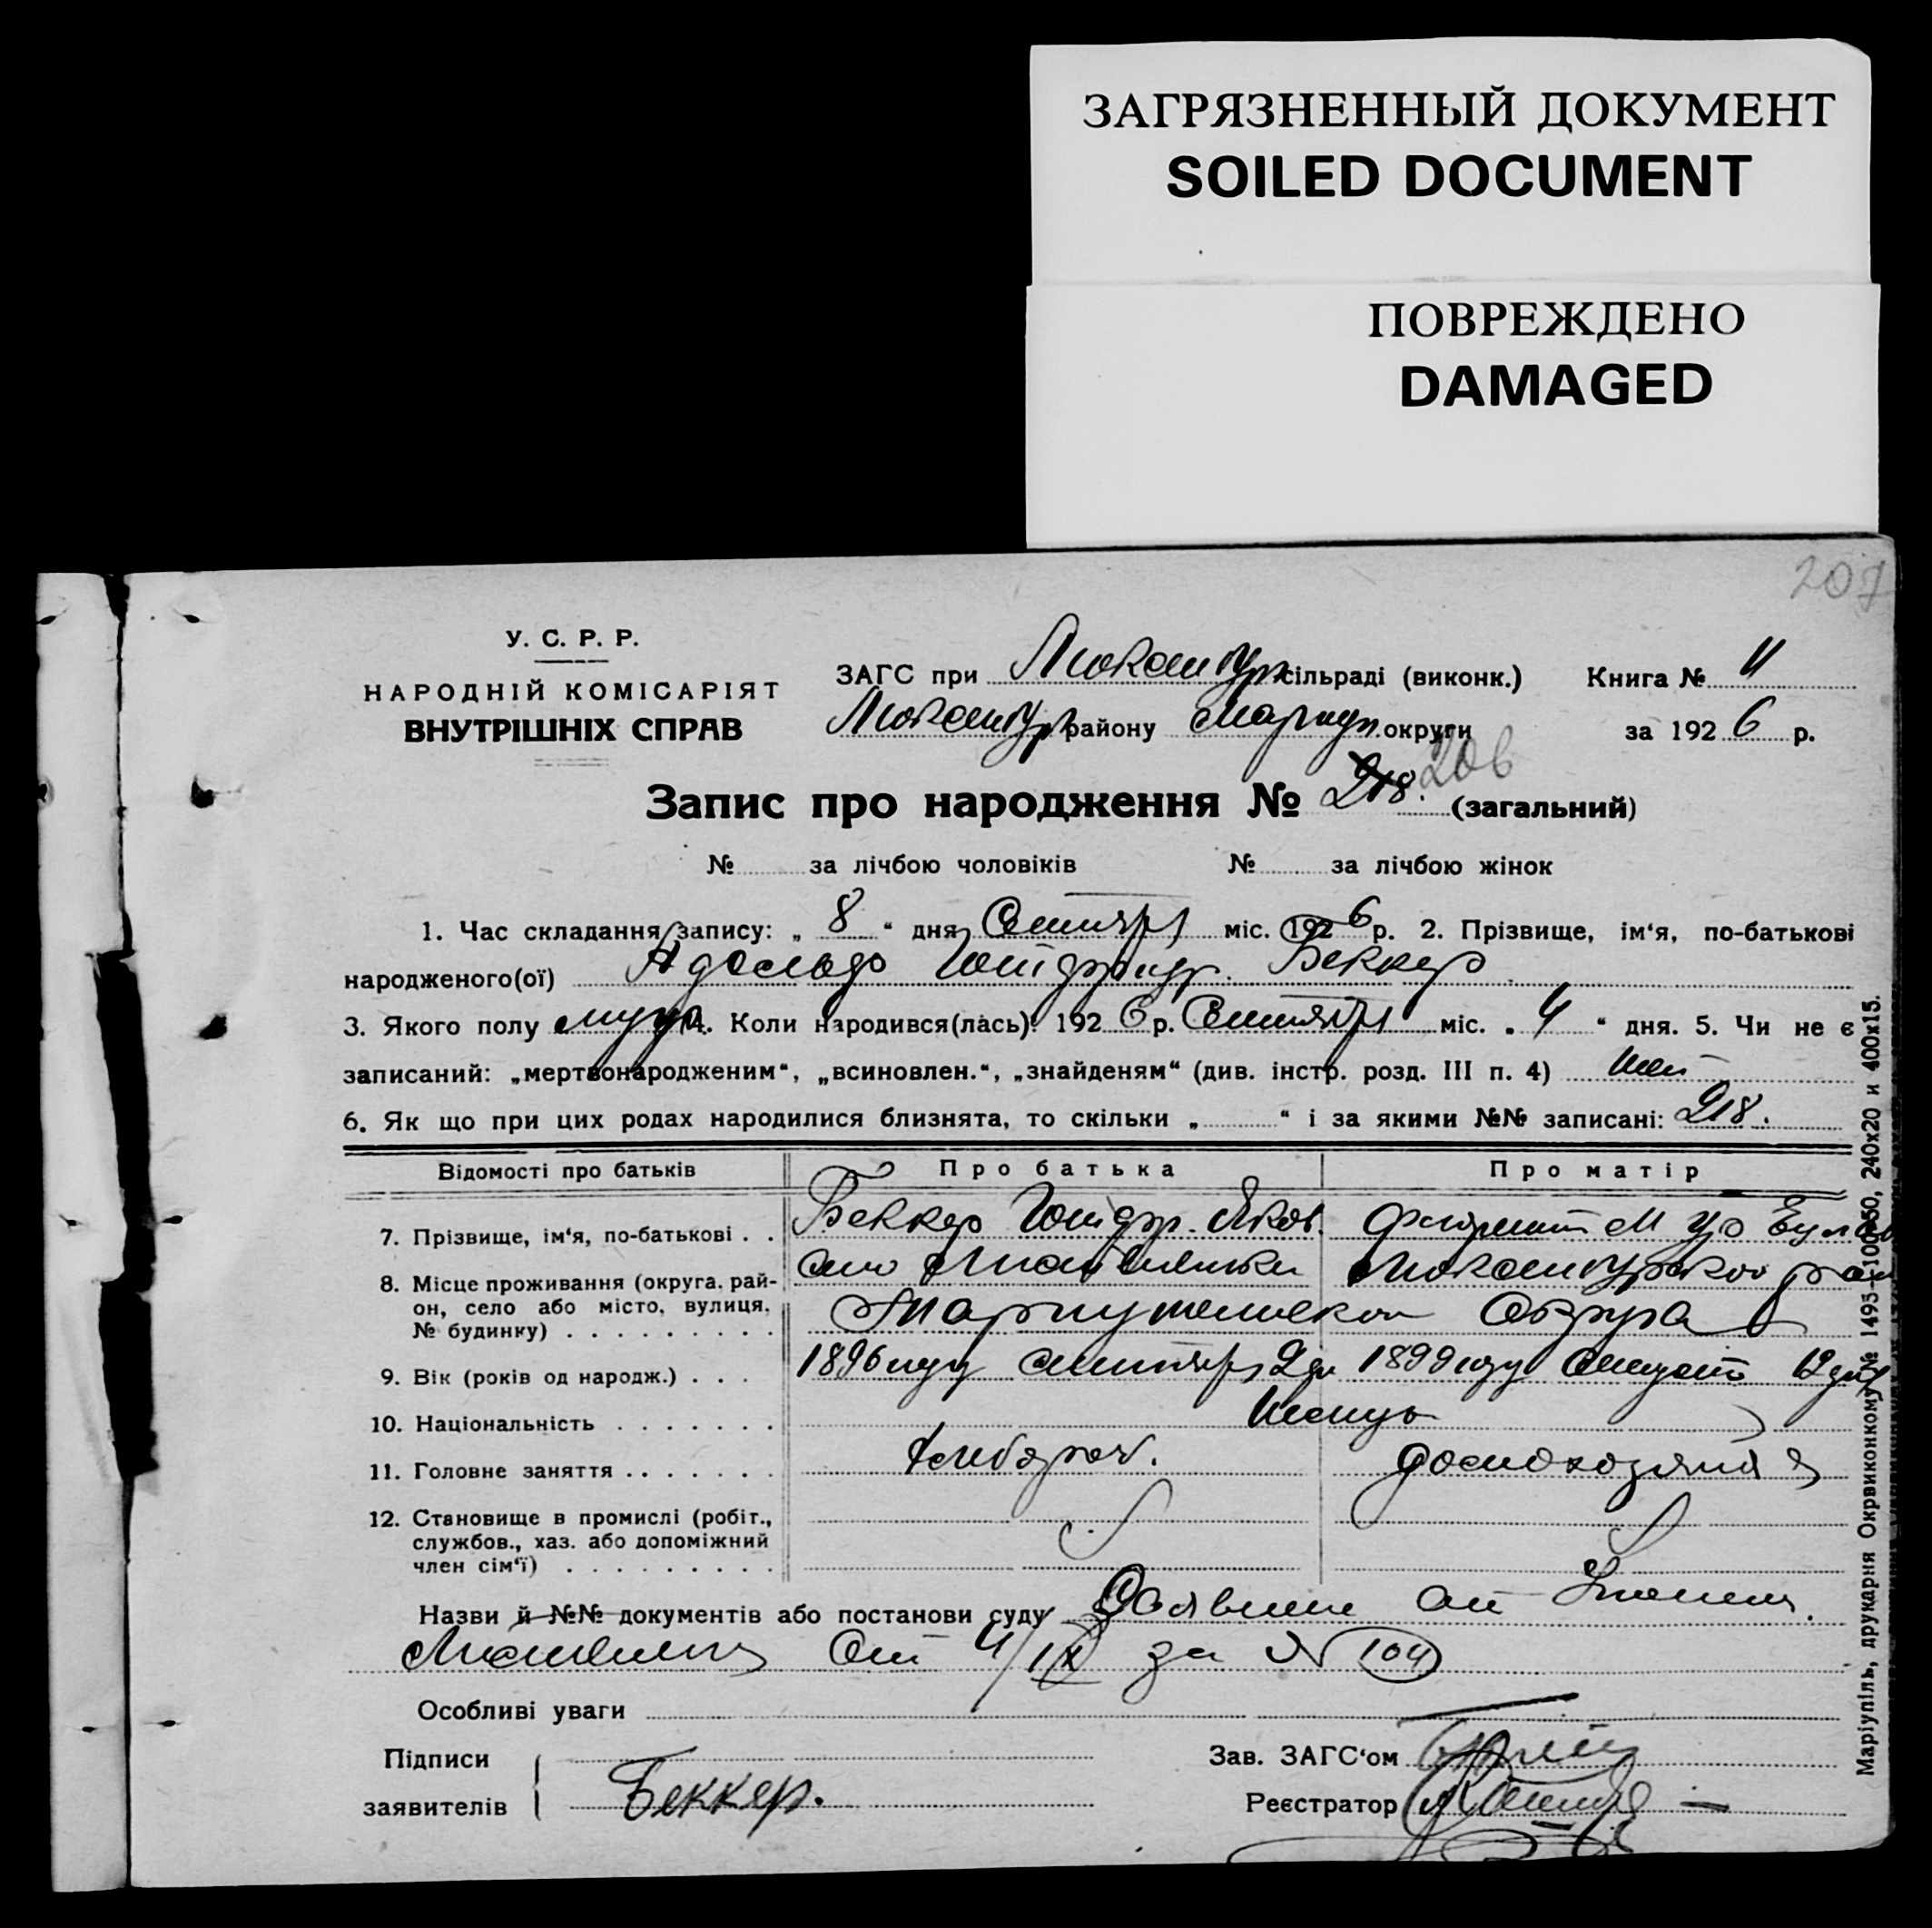 ЗАГРЯЗНЕННЫЙ ДОКУМЕНТ
SOILED DOCUMENT
ПОВРЕЖДЕНО
DAMAGED
207
У. С. Р. Р.
НАРОДНІЙ КОМІСАРІЯТ
ВНУТРІШНІХ СПРАВ
ЗАГС при Люксембур сільраді (виконк.)
Люксембур району Мариуп. округи
Книга № 4
за 192 6 р.
Запис про народження № 218. 206 (загальний)
№ за лічбою чоловіків № за лічбою жінок
1. Час складання запису: „ 8 “ дня Сентяр міс. 192 6 р. 2. Прізвище, ім‘я, по-батькові
народженого(ої) Адольф Готфрид. Беккер
3. Якого полу муж 4. Коли народився(лась): 192 6 р. Сентяр міс. „ 4 “ дня. 5. Чи не є
записаний: „мертвонародженим“, „всиновлен.“, „знайденям“ (див. інстр. розд. III п. 4) нет
6. Як що при цих родах народилися близнята, то скільки „ “ і за якими №№ записані: 218.
Відомості про батьків Про батька Про матір
7. Прізвище, ім‘я, по-батькові . . Беккер Готфр. Яков.
8. Місце проживання (округа, рай-
он, село або місто, вулиця,
№ будинку) . . . . . . . . .
Люксембургского
Мариупольского Округа
9. Вік (років од народж.) . . . 1896 году сентяр 2 дн 1899 году 12 дня
10. Національність . . . . . . . Немцы
11. Головне заняття . . . . . . . Хлебороб. домохозяйка
12. Становище в промислі (робіт.,
службов., хаз. або допоміжний
член сім‘ї) . . . . . . . . .
Назви й №№ документів або постанови суду
От 4/IX за N 104
Особливі уваги
Підписи
заявителів Беккер.
Зав. ЗАГС‘ом
Реєстратор
Маріупіль, друкарня Окрвиконкому № 1495—100х50, 240х20 и 400х15.